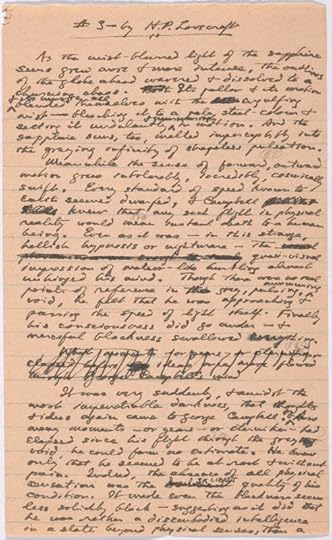 # 3 — by H. P. Lovecraft
As the mist-blurred light of the sapphire
suns grew more & more intense, the outlines
of the globe ahead wavered & dissolved to a
churning chaos. Its pallor & its motion
& its music all blended themselves with the engulfing
mist — bleaching it to a pale steel-colour &
setting it undulantly in motion. And the
sapphire suns, too, melted imperceptibly into
the graying infinity of shapeless pulsation.
Meanwhile the sense of forward, outward
motion grew intolerably, incredibly, cosmically
swift. Every standard of speed known to
earth seemed dwarfed, & Campbell
knew that any such flight in physical
reality would mean instant death to a human
being. Even as it was — in this strange,
hellish hypnosis or nightmare — the
quasi-visual
impression of meteor-like hurtling almost
unhinged his mind. Though there were no real
points of reference in the grey, pulsing
void, he felt that he was approaching &
passing the speed of light itself. Finally
his consciousness did go under — &
merciful blackness swallowed everything.
It was very suddenly, & amidst the
most impenetrable darkness, that thoughts
& ideas again came to George Campbell. Of how
many moments — or years — or eternities — had
elapsed since his flight through the grey
void, he could form no estimate. He knew
only that he seemed to be at rest & without
pain. Indeed, the absence of all physical
sensation was the salient quality of his
condition. It made even the blackness seem
less solidly black — suggesting as it did that
he was rather a disembodied intelligence
in a state beyond physical senses, than a